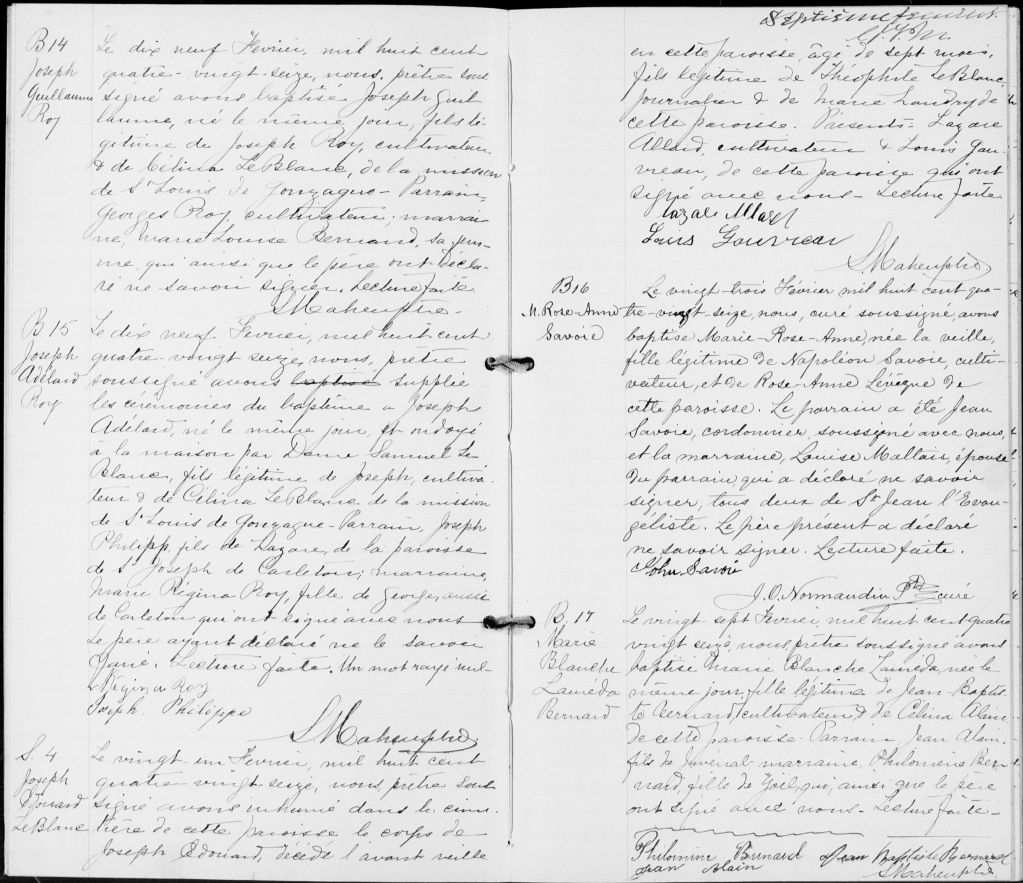 B14
Joseph
Guillaume
Roy
Le dix neuf Fevrier, mil huit cent
quatre-vingt-seize, nous, prêtre sous
signé avons baptisé Joseph Guil
laume, né le même jour, fils lé
gitime de Joseph Roy, cultivateur
& de Célina LeBlanc, de la mission
de St Louis de Gonzague - Parrain,
Georges Roy, cultivateur; marrai
ne, Marie Louise Bernard, sa fem-
me, qui ainsi que le père ont décla-
ré ne savoir signer. Lecture faite
B15
Joseph
Adélard
Roy
Le dix neuf Fevrier, mil huit cent
quatre-vingt seize, nous, prêtre
soussigné avons baptisé supplié
les cérémonies du baptême a Joseph
Adélard, né le même jour, & ondoyé
à la maison par Dame Samuel Le
Blanc, fils légitime de Joseph, cultiva-
teur & de Célina LeBlanc de la mission
de St Louis de Gonzague - Parrain, Joseph
Philipp, fils de Lazare, de la paroisse
de St Joseph de Carleton; marraine,
Marie Régina Roy, fille de George, aussi
de Carleton qui ont signé avec nous
Le père ayant déclaré ne le savoir
faire. Lecture faite. Un mot rayé nul
Régina Roy
Joseph Philippe
S. 4
Joseph
Edouard
LeBlanc
Le vingt-un Fevrier, mil huit cent
quatre vingt seize, nous, prêtre sous
signé avons inhumé dans le cime
tière de cette paroisse le corps de
Joseph Edouard, décédé l'avant veille
Septième feuillet.
en cette paroisse, âgé de sept mois,
fils légitime de Théophile LeBlanc,
journalier & de Marie Landry de
cette paroisse. Présents: Lazare
Allard, cultivateur & Louis Gau-
vreau, de cette paroisse qui ont
signé avec nous - Lecture faite
Lazare Allard
Louis Gauvreau
B16
M. Rose-Anne
Savoie
Le vingt-trois Février mil huit cent qua-
tre-vingt-seize, nous, curé soussigné, avons
baptisé Marie-Rose-Anne, née la veille,
fille légitime de Napoléon Savoie, culti-
vateur, et de Rose-Anne Lévèque de
cette paroisse. Le parrain a été Jean
Savoie, cordonnier, soussigné avec nous,
et la marraine, Louise Maltais, épouse
du parrain, qui a déclaré ne savoir
signer, tous deux de St Jean l'Evan-
géliste. Le père présent a déclaré
ne savoir signer. Lecture faite.
John Savoi
J. O. Normandin Ptre curé
B. 17
Marie
Blanche
Laméda
Bernard
Le vingt-sept Fevrier, mil huit cent quatre
vingt seize, nous prêtre soussigné avons
baptisé Marie Blanche Laméda, née le
même jour, fille légitime de Jean-Baptis
te Bernard, cultivateur & de Célina Alain
de cette paroisse - Parrain, Jean Alain,
fils de Juvénal - marraine, Philomène Ber
nard, fille de Joël, qui, ainsi que le père
ont signé avec nous - Lecture faite -
Philomine Bernard Jean Baptiste Bernard
Jean Alain